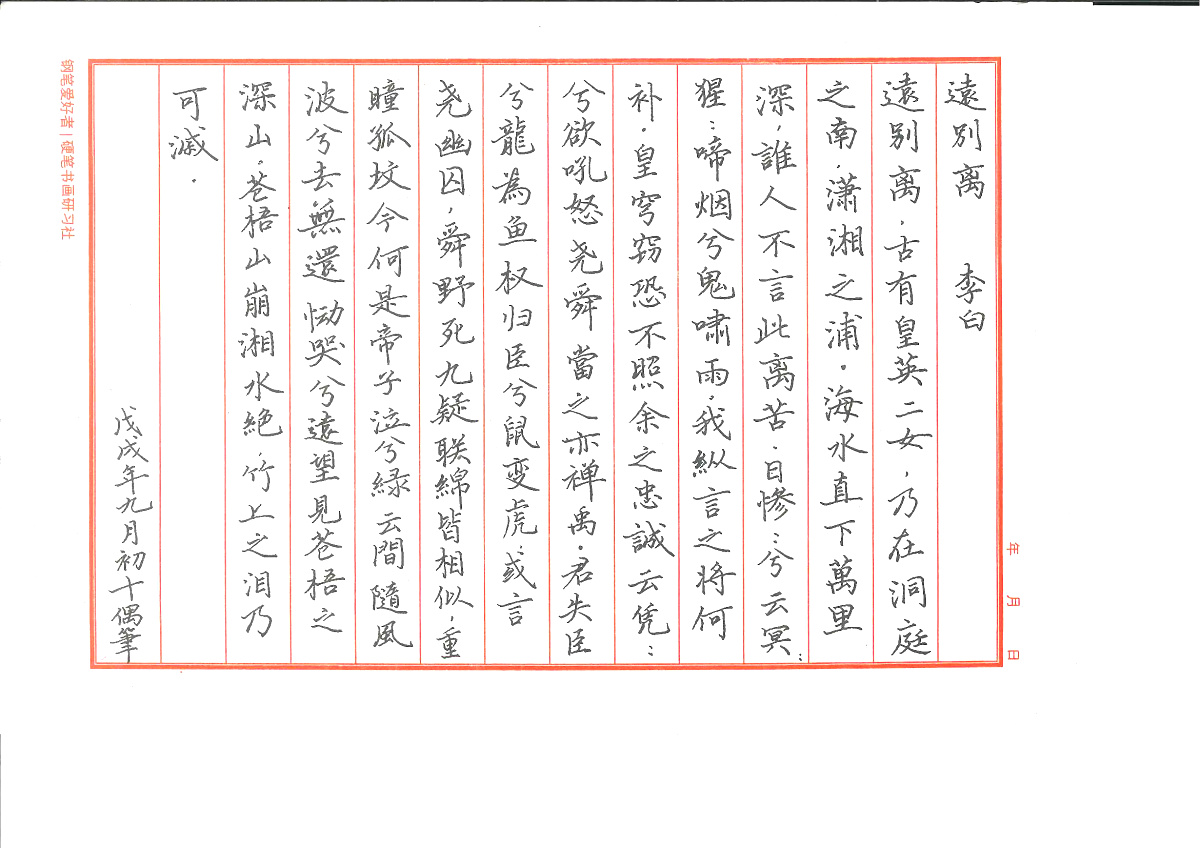 遠别离 李白
遠别离，古有皇英二女，乃在洞庭
之南，潇湘之浦。海水直下萬里
深，誰人不言此离苦。日惨：兮云冥：
猩：啼烟兮鬼啸雨，我縱言之将何
补。皇穹窃恐不照余之忠誠云凭：
兮欲吼怒尧舜當之亦禅禹。君失臣
兮龍為鱼权归臣兮鼠变虎。或言
尧幽囚，舜野死九疑联綿皆相似，重
瞳孤坟今何是帝子泣兮緑云間隨風
波兮去無還慟哭兮遠望見苍梧之
深山。苍梧山崩湘水绝，竹上之泪乃
可滅．
戊戌年九月初十偶筆
钢笔爱好者 | 硬笔书画研习社
年 月 日